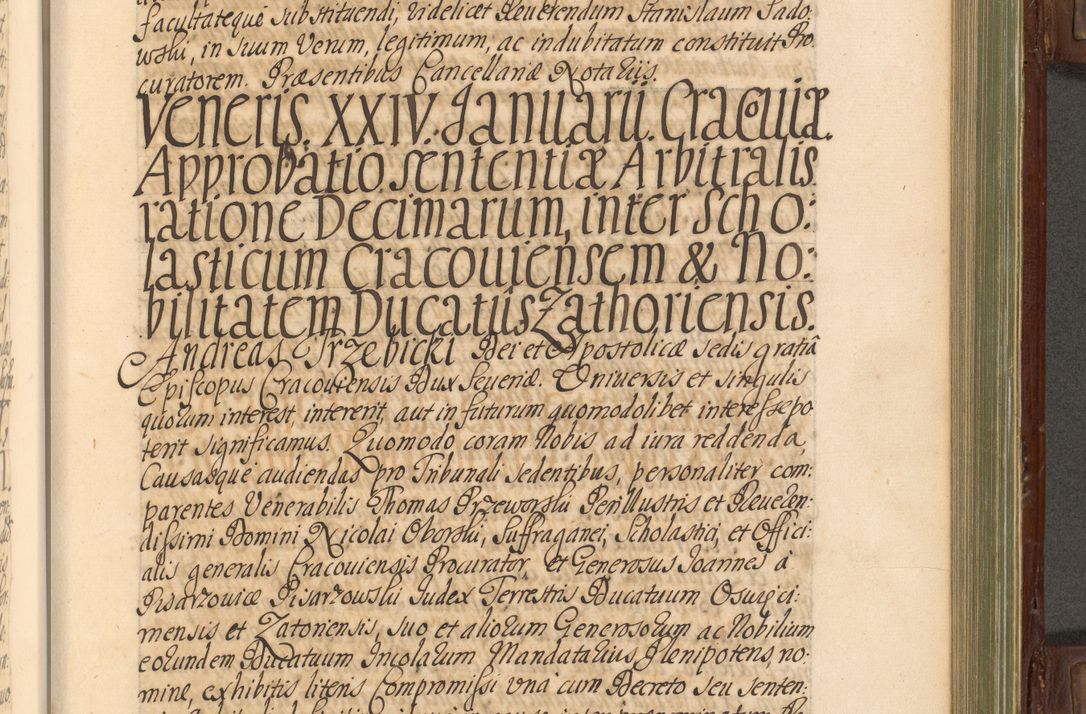 facultateque substituendi, videlicet Reverendum Stanislaum Sado:
wski, in suum verum, legitimum, ac indubitatum constituit Pro:
curatorem. Præsentibus Cancellariæ Notariis.
Veneris. XXIV. Januarii. Cracouiæ.
Approbatio sententiæ Arbitralis
ratione Decimarum, inter Scho:
lasticum Cracouiensem & No:
bilitatem Ducatus Zathoriensis.
Andreas Trzebicki Dei et Apostolicæ sedis gratiâ
Episcopus Cracouiensis Dux Seueriæ. Vniuersis et singulis
quorum interest, intererit, aut in futurum quomodolibet interesse po
terit significamus. Quomodo coram Nobis ad iura reddenda,
Causasque audiendas pro Tribunali sedentibus, personaliter com:
parentes Venerabilis Thomas Przeworski Perillustris et Reueren:
dissimi Domini Nicolai Oborski, Suffraganei, Scholastici, et Offici:
alis generalis Cracouiensis Procurator et Generosus Joannes à
Pisarzouice Pisarzowski Judex Terrestris Ducatuum Oswięci:
mensis et Zatoriensis, suo et aliorum Generosorum ac Nobilium
eorundem Ducatuum Incolarum Mandatarius, Plenipotens, no:
mine, exhibitis literis Compromissi vna cum Decreto seu senten: